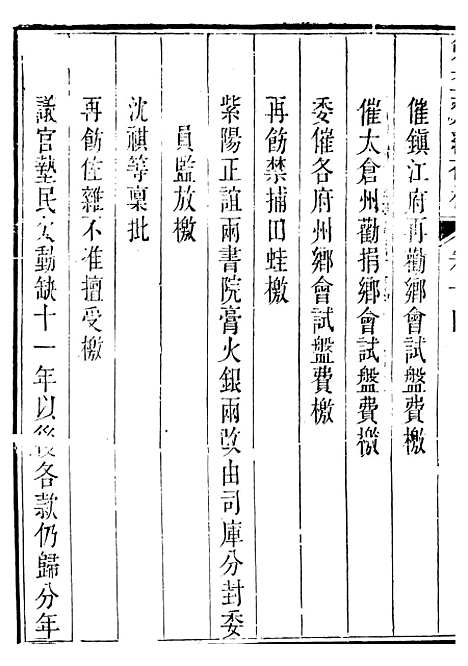 催鎮江府再勸鄉會試盤費檄
催太倉州勸捐鄉會試盤費檄
委催各府州鄉會試盤費檄
再飭禁捕田蛙檄
紫陽正誼兩書院膏火銀兩改由司庫分封委
員監放檄
沈祺等稟批
再飭佐雜不准擅受檄
議官墊民欠動缺十一年以後各款仍歸分年